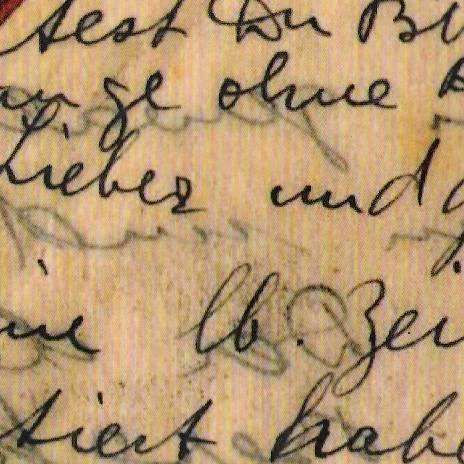 test Du Bi
ange ohne
Lieber und d
ine lb. Zei
tiert habe